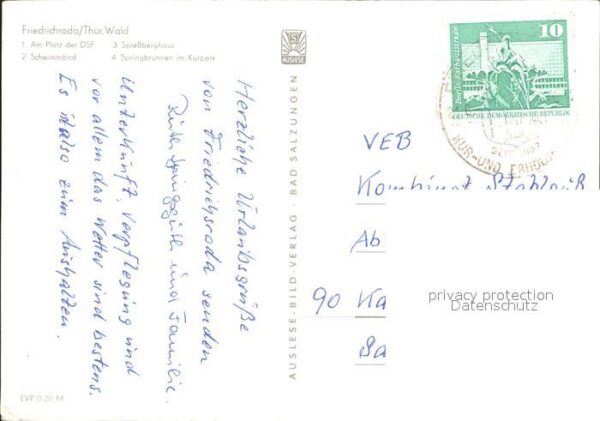 Friedrichroda/Thür. Wald
1 Am Platz der DSF   3 Spießberghaus
2 Schwimmbad   4 Springbrunnen im Kurpark
AUSLESE
Herzliche Urlaubsgrüße
von Friedrichroda senden
und Familie.
Unterkunft, Verpflegung und
vor allem das Wetter sind bestens.
Es ist also zum Aushalten.
EVP 0.20 M
AUSLESE-BILD-VERLAG · BAD SALZUNGEN
10
Berlin, Rathausstraße
DEUTSCHE DEMOKRATISCHE REPUBLIK
KUR-UND ERHOLU
VEB
Kombinat
Ab
90 Ka
Ba
privacy protection
Datenschutz